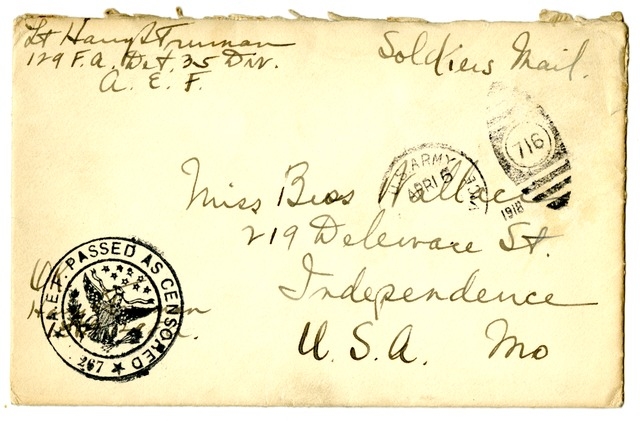 Lt Harry S Truman
129 F.A. Det. 35 Div.
A. E. F.
Soldiers Mail.
716
U.S. ARMY
APR 15
1918
Miss Bess Wallace
219 Deleware St.
Independence
U.S.A. Mo
A.E.F. PASSED AS CENSORED
267